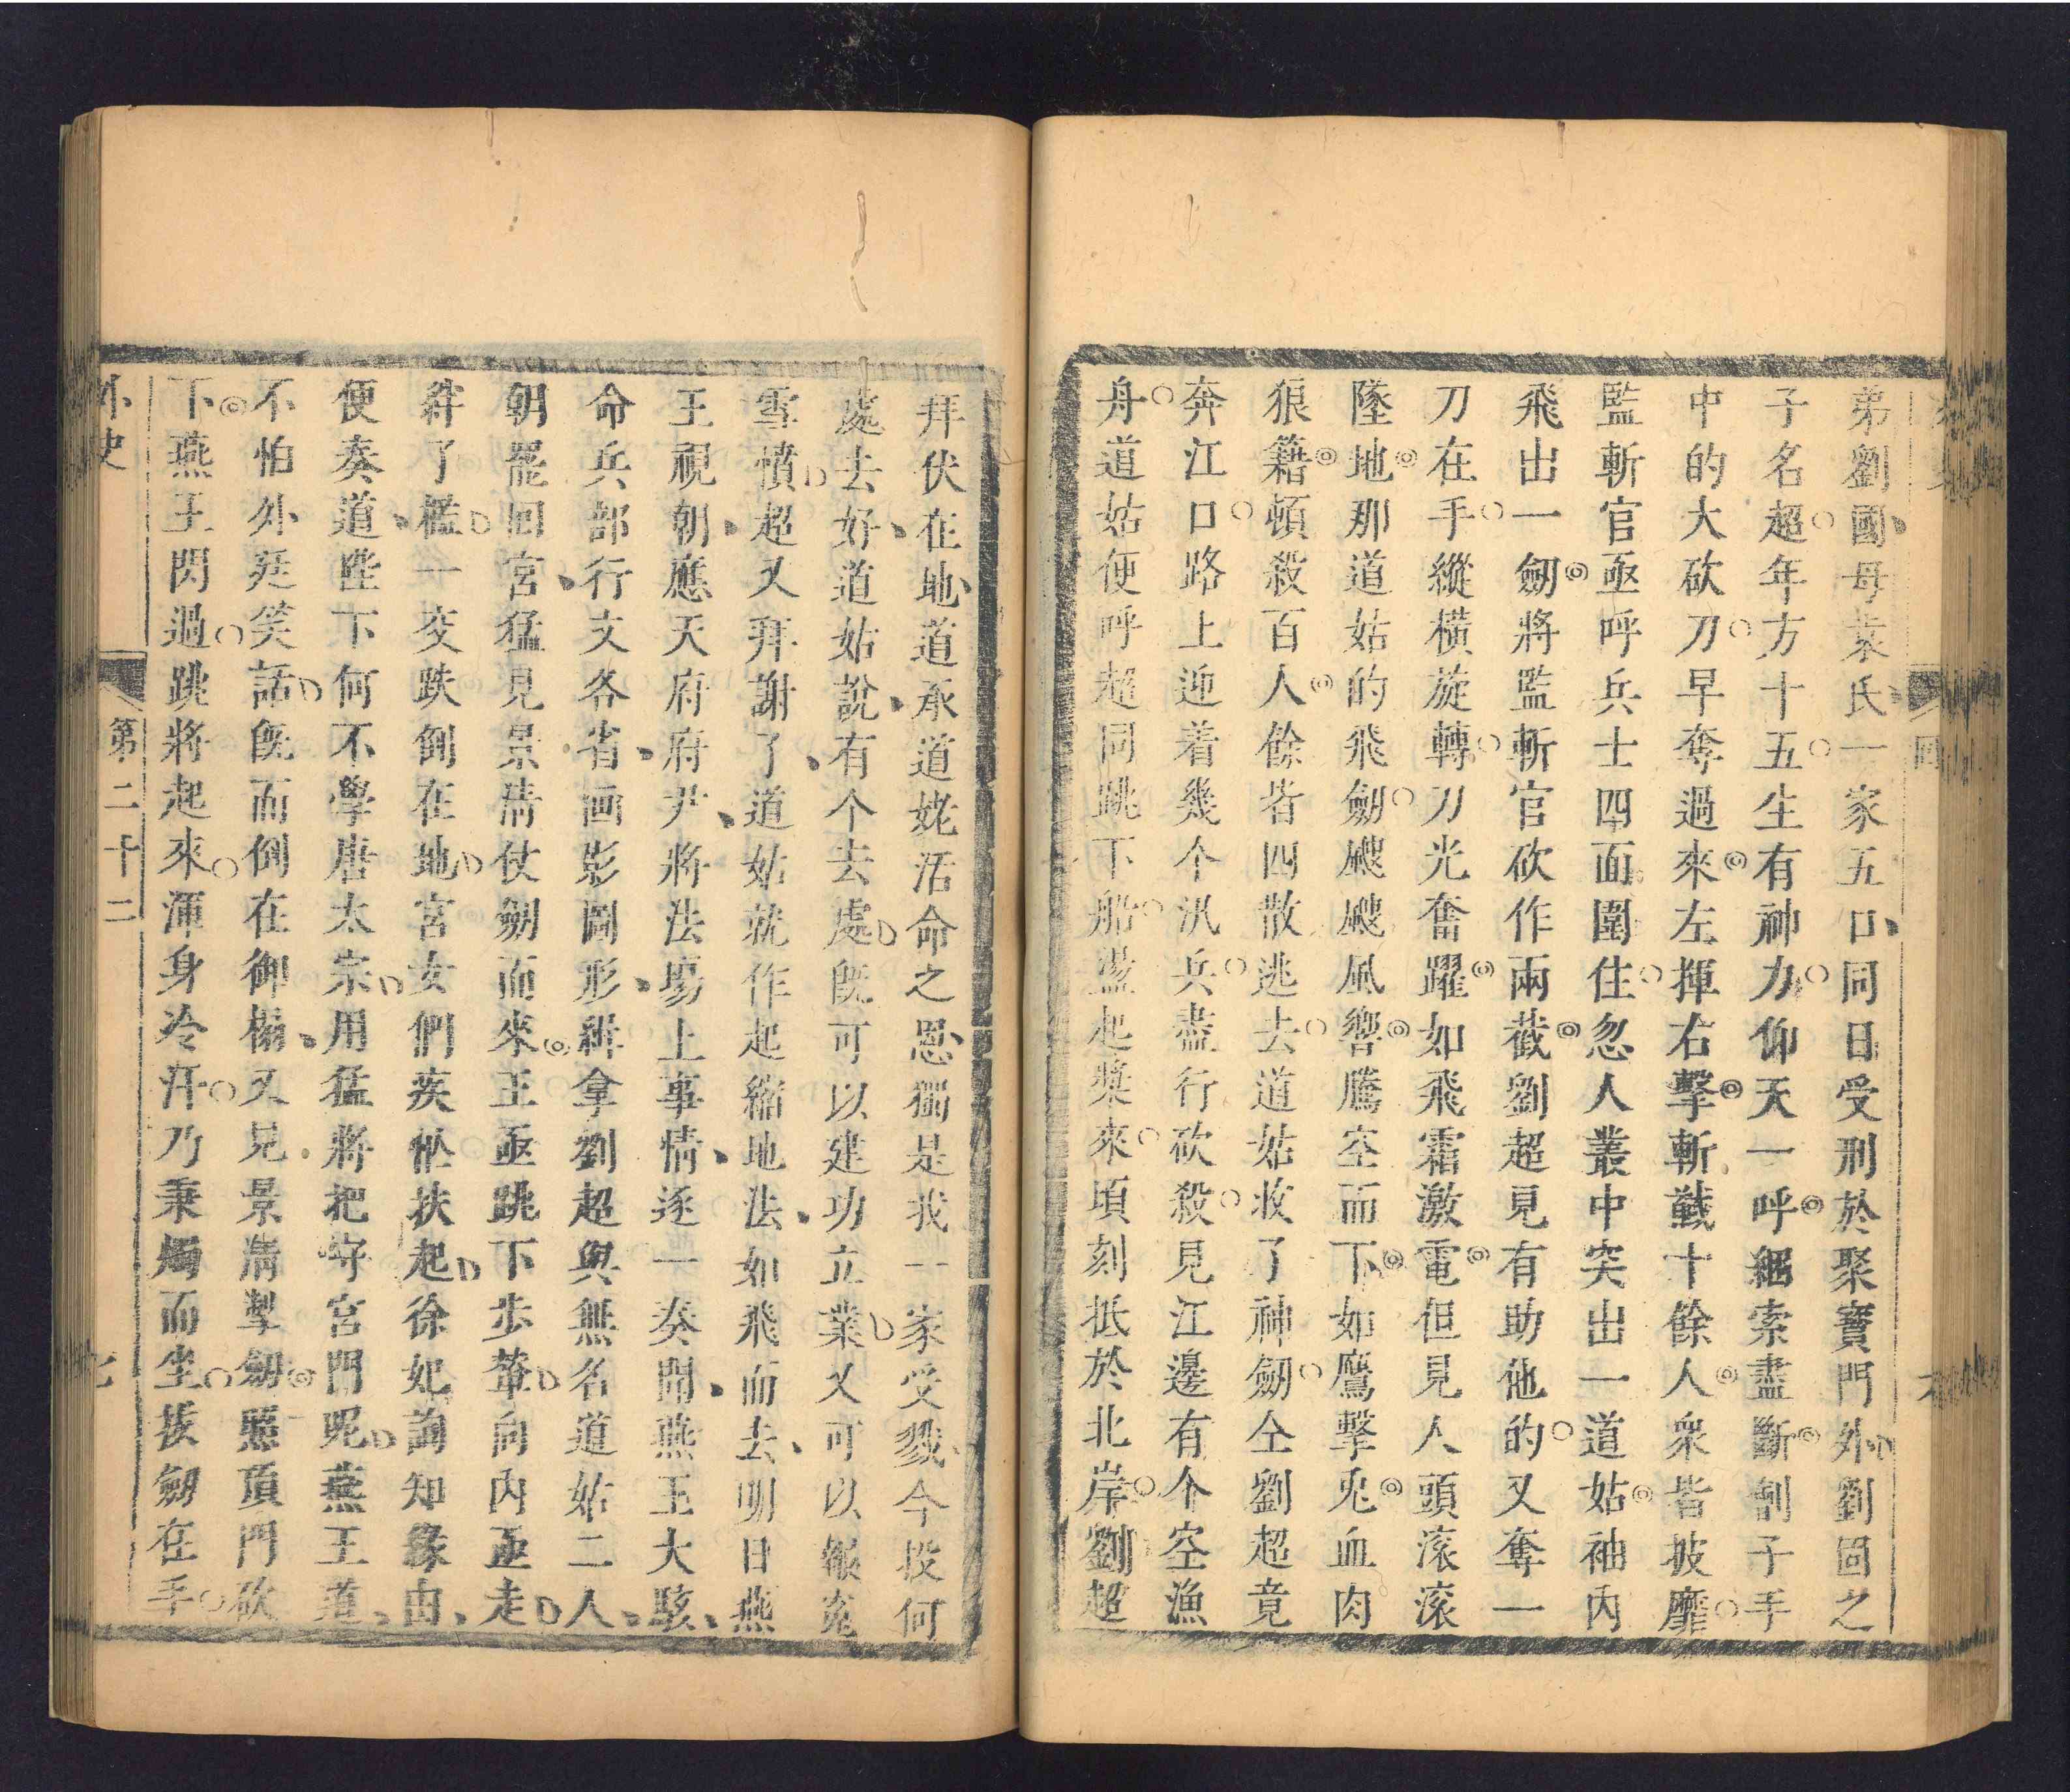 弟劉國母袁氏一家五口同日受刑於聚寶門外劉固之
子名超年方十五生有神力仰天一呼綑索盡斷劊子手
中的大砍刀早奪過來左揮右擊斬馘十餘人衆皆披靡
監斬官亟呼兵士四面圍住忽人叢中突出一道姑袖內
飛出一劒將監斬官砍作兩截劉超見有助他的又奪一
刀在手縱橫旋轉刀光奮躍如飛霜激電但見人頭滚滚
墜地那道姑的飛劒颼颼風響騰空而下如鷹擊兎血肉
狼籍頓殺百人餘者四散逃去道姑收了神劒仝劉超竟
奔江口路上迎着幾个汛兵盡行砍殺見江邊有个空漁
舟道姑便呼超同跳下船盪起槳來頃刻抵於北岸劉超
拜伏在地道承道姥活命之恩獨是我一家受戮今投何
處去好道姑說有个去處旣可以建功立業又可以報寃
雪憤超又拜謝了道姑就作起縮地法如飛而去明日燕
王視朝應天府府尹將法塲上事情逐一奏聞燕王大駭
命兵部行文各省画影圖形緝拿劉超與無名道姑二人
朝罷回宮猛見景清仗劒而來王亟跳下步輦向內亟走
絆了檻一交跌倒在地宮女們疾忙扶起徐妃詢知緣由
便奏道陛下何不學唐太宗用猛將把守宮門呢燕王道
不怕外廷笑話旣而倒在御榻又見景清掣劒照頂門砍
下燕王閃過跳將起來渾身冷汗乃秉燭而坐拔劒在手
外史
第二十二